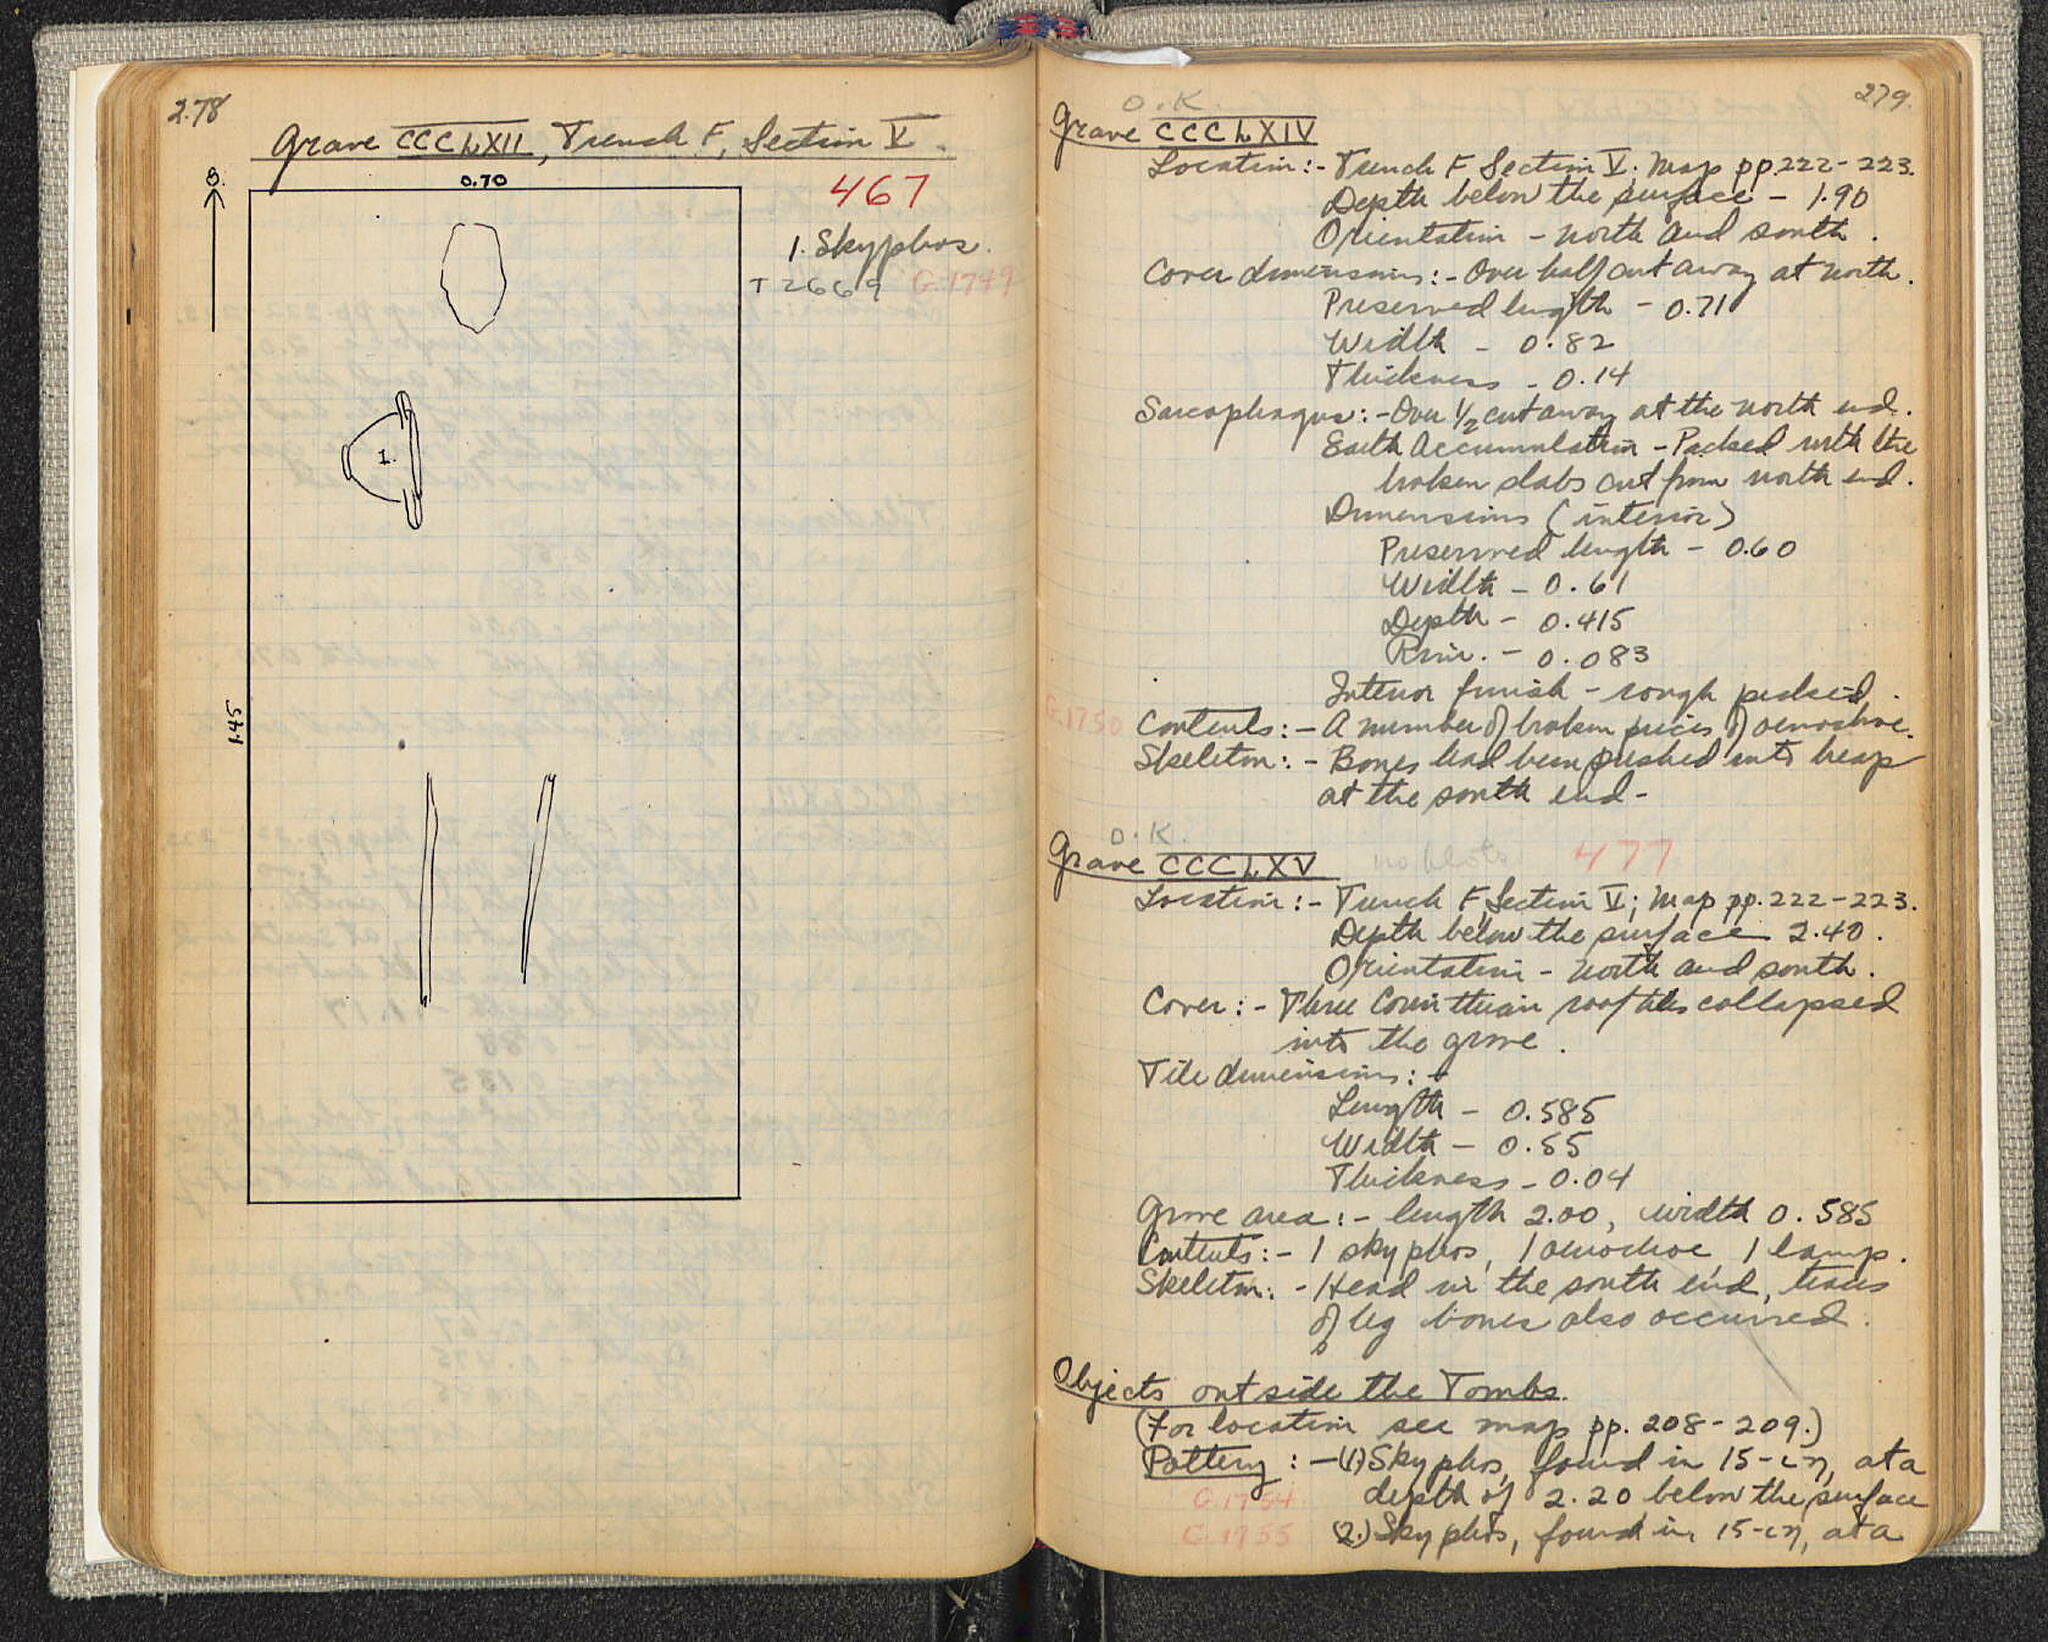 278
Grave CCCLXII, Trench F, Section V.
S.
0.70
467
1. Skyphos.
T 2669 C.1749
1.
1.45
279.
O.K.
Grave CCCLXIV
Location:- Trench F Section V; Map pp.222-223.
Depth below the surface - 1.90
Orientation - north and south.
Cover dimensions:- Over half cut away at north.
Preserved length - 0.71
Width - 0.82
Thickness - 0.14
Sarcophagus:- Over 1/2 cut away at the north end.
Earth Accumulation - Packed with the
broken slabs cut from north end.
Dimensions (interior)
Preserved length - 0.60
Width - 0.61
Depth - 0.415
Rim. - 0.083
Interior finish - rough picked.
C.1750 Contents:- A number of broken pieces of oenochoe.
Skeleton:- Bones had been pushed into heap
at the south end-
O.K.
Grave CCCLXV no plots 477
Location:- Trench F, Section V; Map pp.222-223.
Depth below the surface 2.40.
Orientation - north and south.
Cover:- Three Corinthian roof tiles collapsed
into the grave.
Tile dimensions:-
Length - 0.585
Width - 0.55
Thickness - 0.04
Grave area:- length 2.00, width 0.585
Contents:- 1 skyphos, 1 oenochoe, 1 lamp.
Skeleton:- Head in the south end, traces
of leg bones also occurred.
Objects outside the Tombs.
(For location see map pp. 208-209.)
Pottery:- (1.) Skyphos, found in 15-ιη, at a
C.1754 depth of 2.20 below the surface
C.1755 (2.) Skyphos, found in 15-ιη, at a